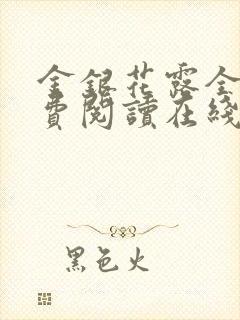 金銀花露全
費閱讀在綫
黑色火